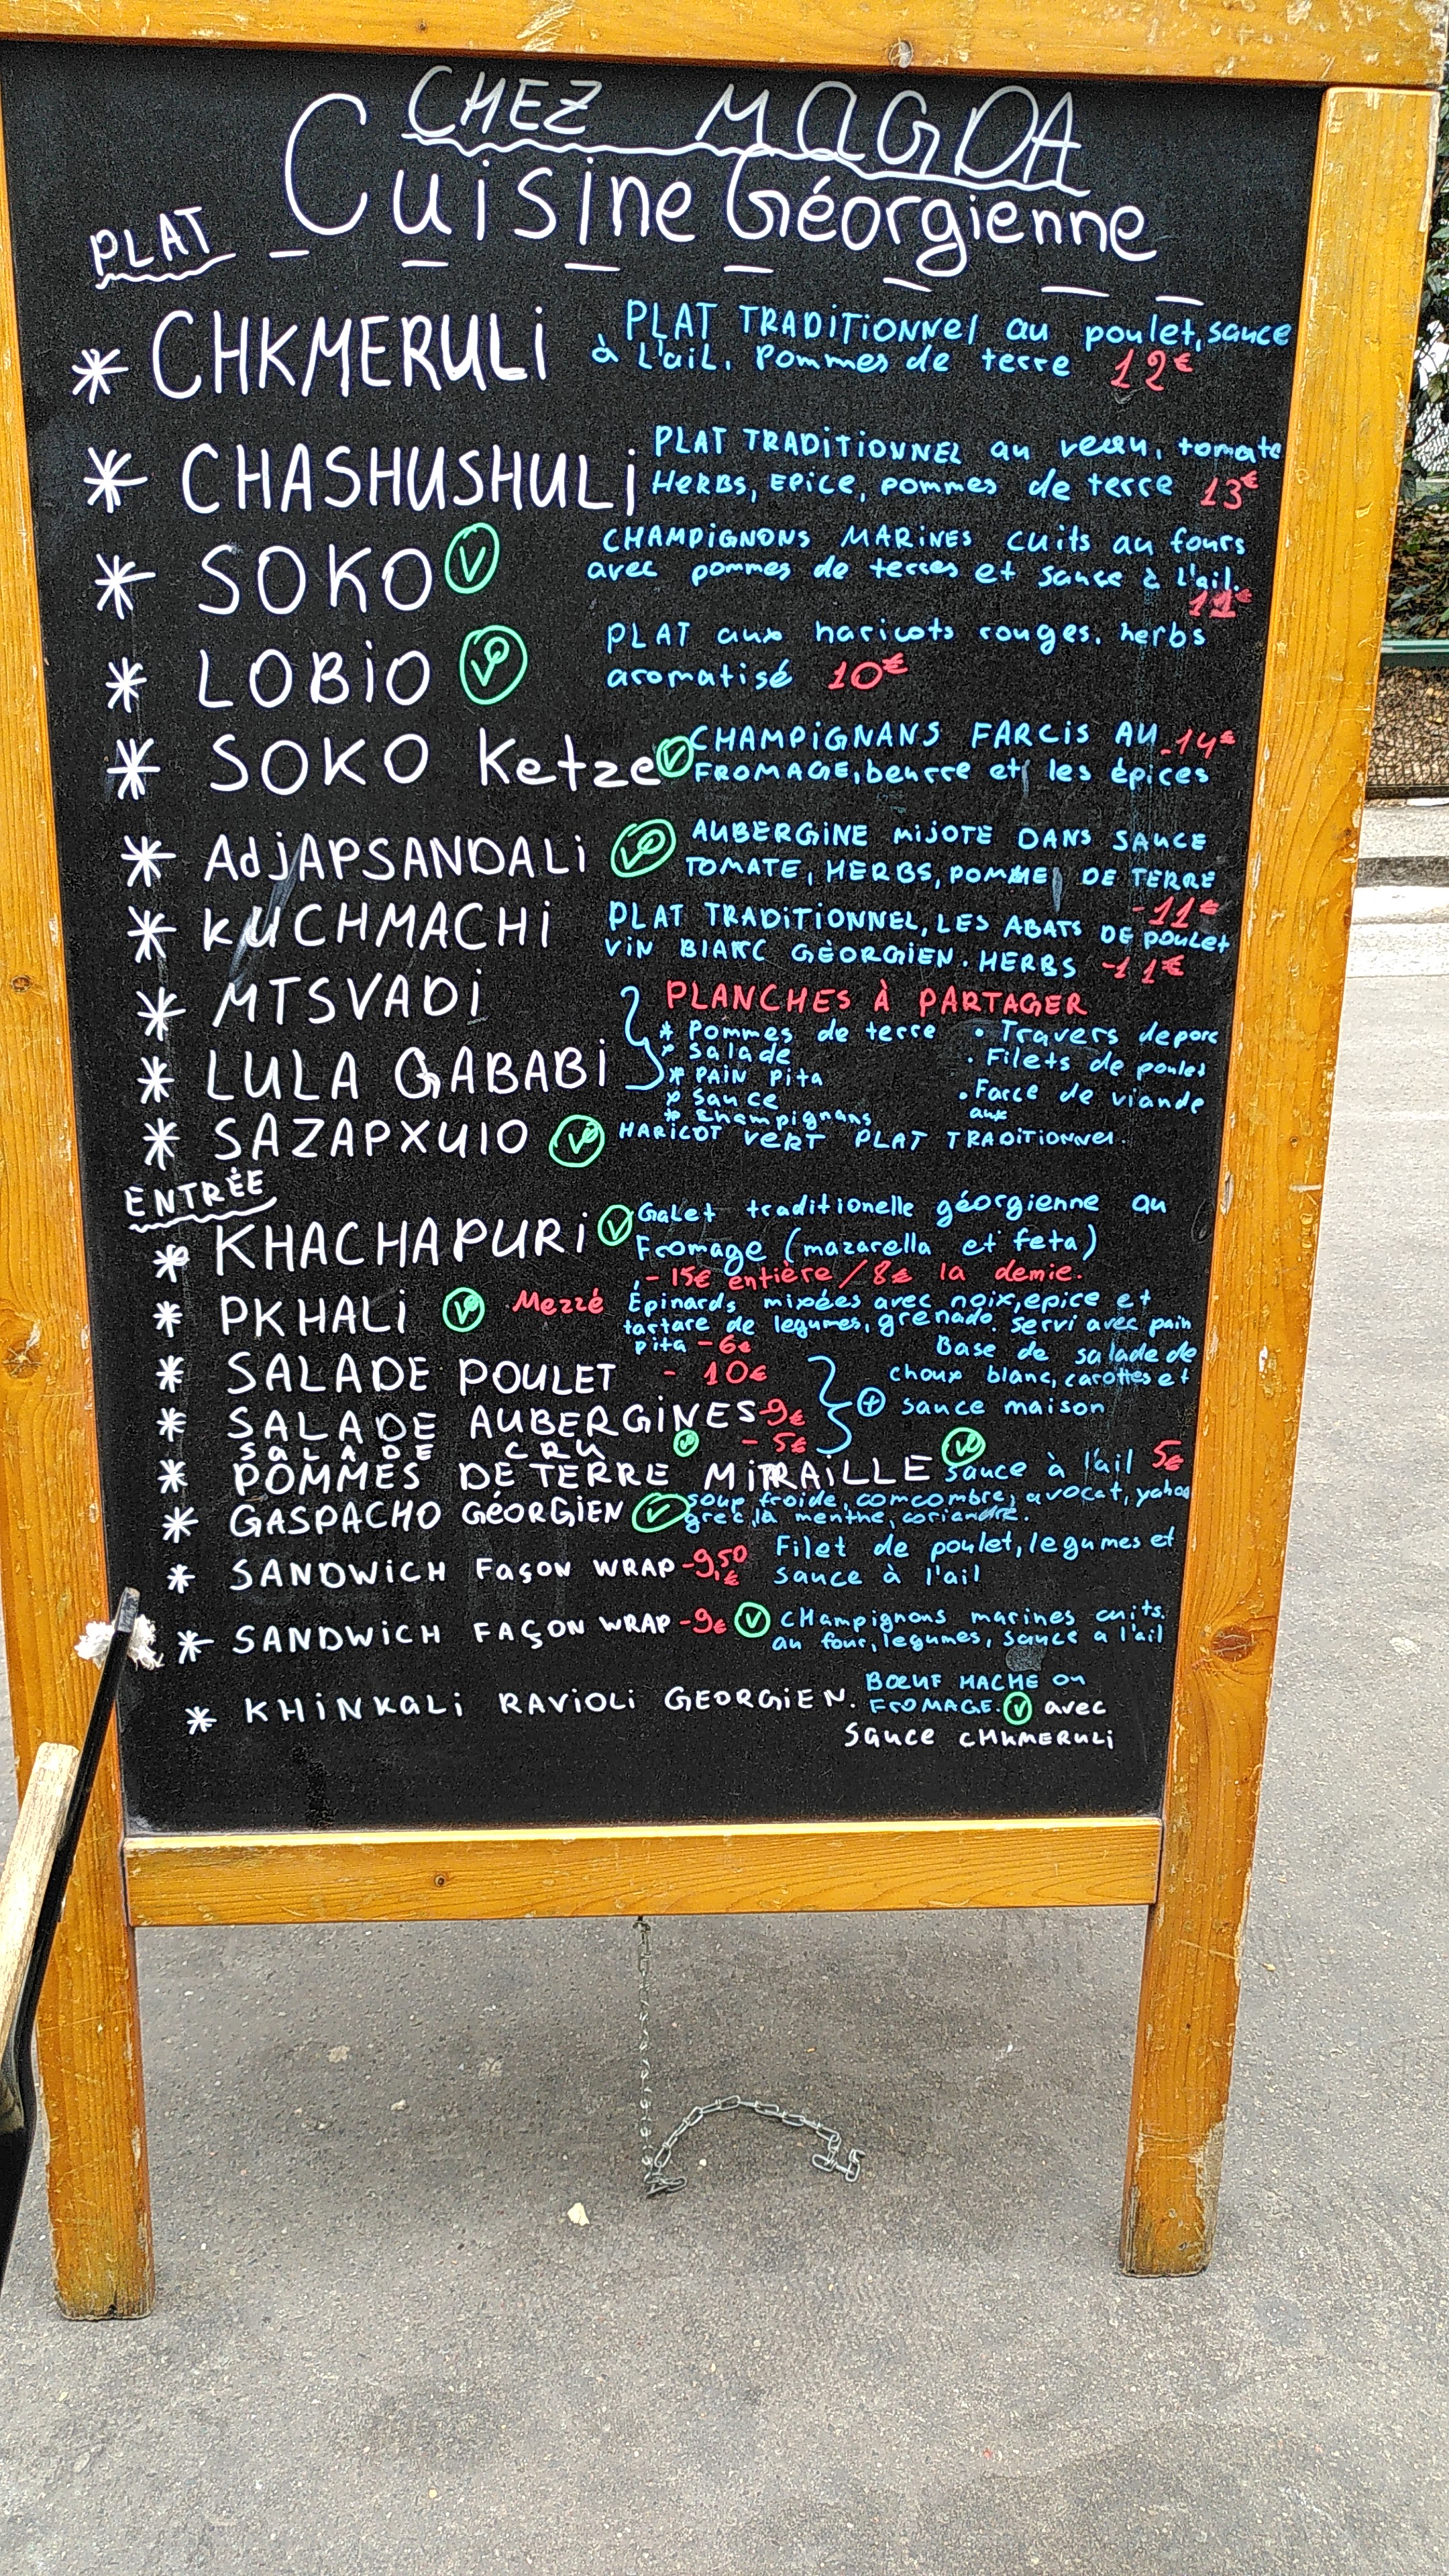 CHEZ MAGDA
Cuisine Géorgienne
PLAT
* CHKMERULi PLAT TRADiTiONNel au poulet, sauce
à L'aiL. Pommes de terre 12€
* CHASHUSHULi PLAT TRADiTiONNEL au veau, tomate
HERBS, EPICE, pommes de terre 13€
* SOKO V CHAMPiGNONS MARiNES cuits au fours
avec pommes de terres et sauce à L'ail.
11€
* LOBiO V PLAT aux haricots rouges, herbs
aromatisé 10€
* SOKO Ketze V CHAMPiGNANS FARCiS AU -14€
FROMAGE, beurre et les épices
* AdjAPSANDALi V AUBERGiNE MiJOTE DANS SAUCE
TOMATE, HERBS, POMME DE TERRE
-11€
* KUCHMACHi PLAT TRADiTiONNEL, LES ABATS DE POuLet
ViN BlANC GÈORGiEN. HERBS -11€
* MTSVADi PLANCHES À PARTAGER
* Pommes de terre • Travers de porc
* LULA GABABi * Salade • Filets de poulet
* PAiN Pita
* Sauce • Farce de viande
* Champignans aux
* SAZAPXUIO V HARiCOT VERT PLAT TRADiTiONNel.
ENTRÈE
* KHACHAPURi V GaLet traditionelle géorgienne au
Fromage (mazarella et feta)
- 15€ entière / 8€ la demie.
* PKHALi V Mezzé Épinards mixées avec noix, epice et
tartare de legumes, grenado. Servi avec pain
pita - 6€
* SALADE POULET - 10€ Base de salade de
choux blanc, carottes et
* SALADE AUBERGiNES -9€ + sauce maison
SALADE CRU V - 5€
* POMMES DE TERRE MiTRAiLLE V sauce à l'ail 5€
* GASPACHO GÉORGiEN V soup froide, comcombre, avocat,
grec, la menthe, coriandre.
* SANDWiCH FaçoN WRAP -9,50€ Filet de poulet, legumes et
sauce à l'ail
* SANDWiCH FAÇON WRAP -9€ V CHampignons marines cuits.
au four, legumes, sauce a l'ail
* KHiNKaLi RAViOLi GEORGiEN. BŒUF HACHE OU
FROMAGE. V avec
Sauce CHKMERULi